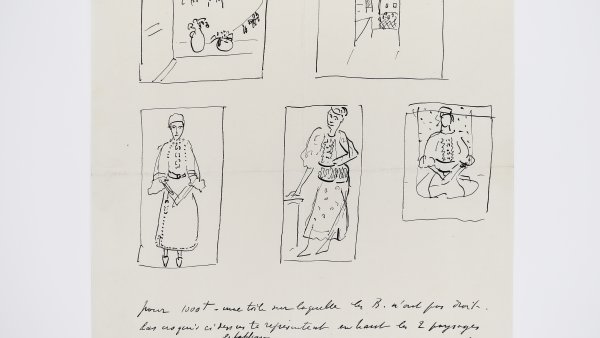 pour 1000f - une toile sur laquelle les B. n'ont pas droit.
Les croquis ci dessus te représentent en haut les 2 paysages